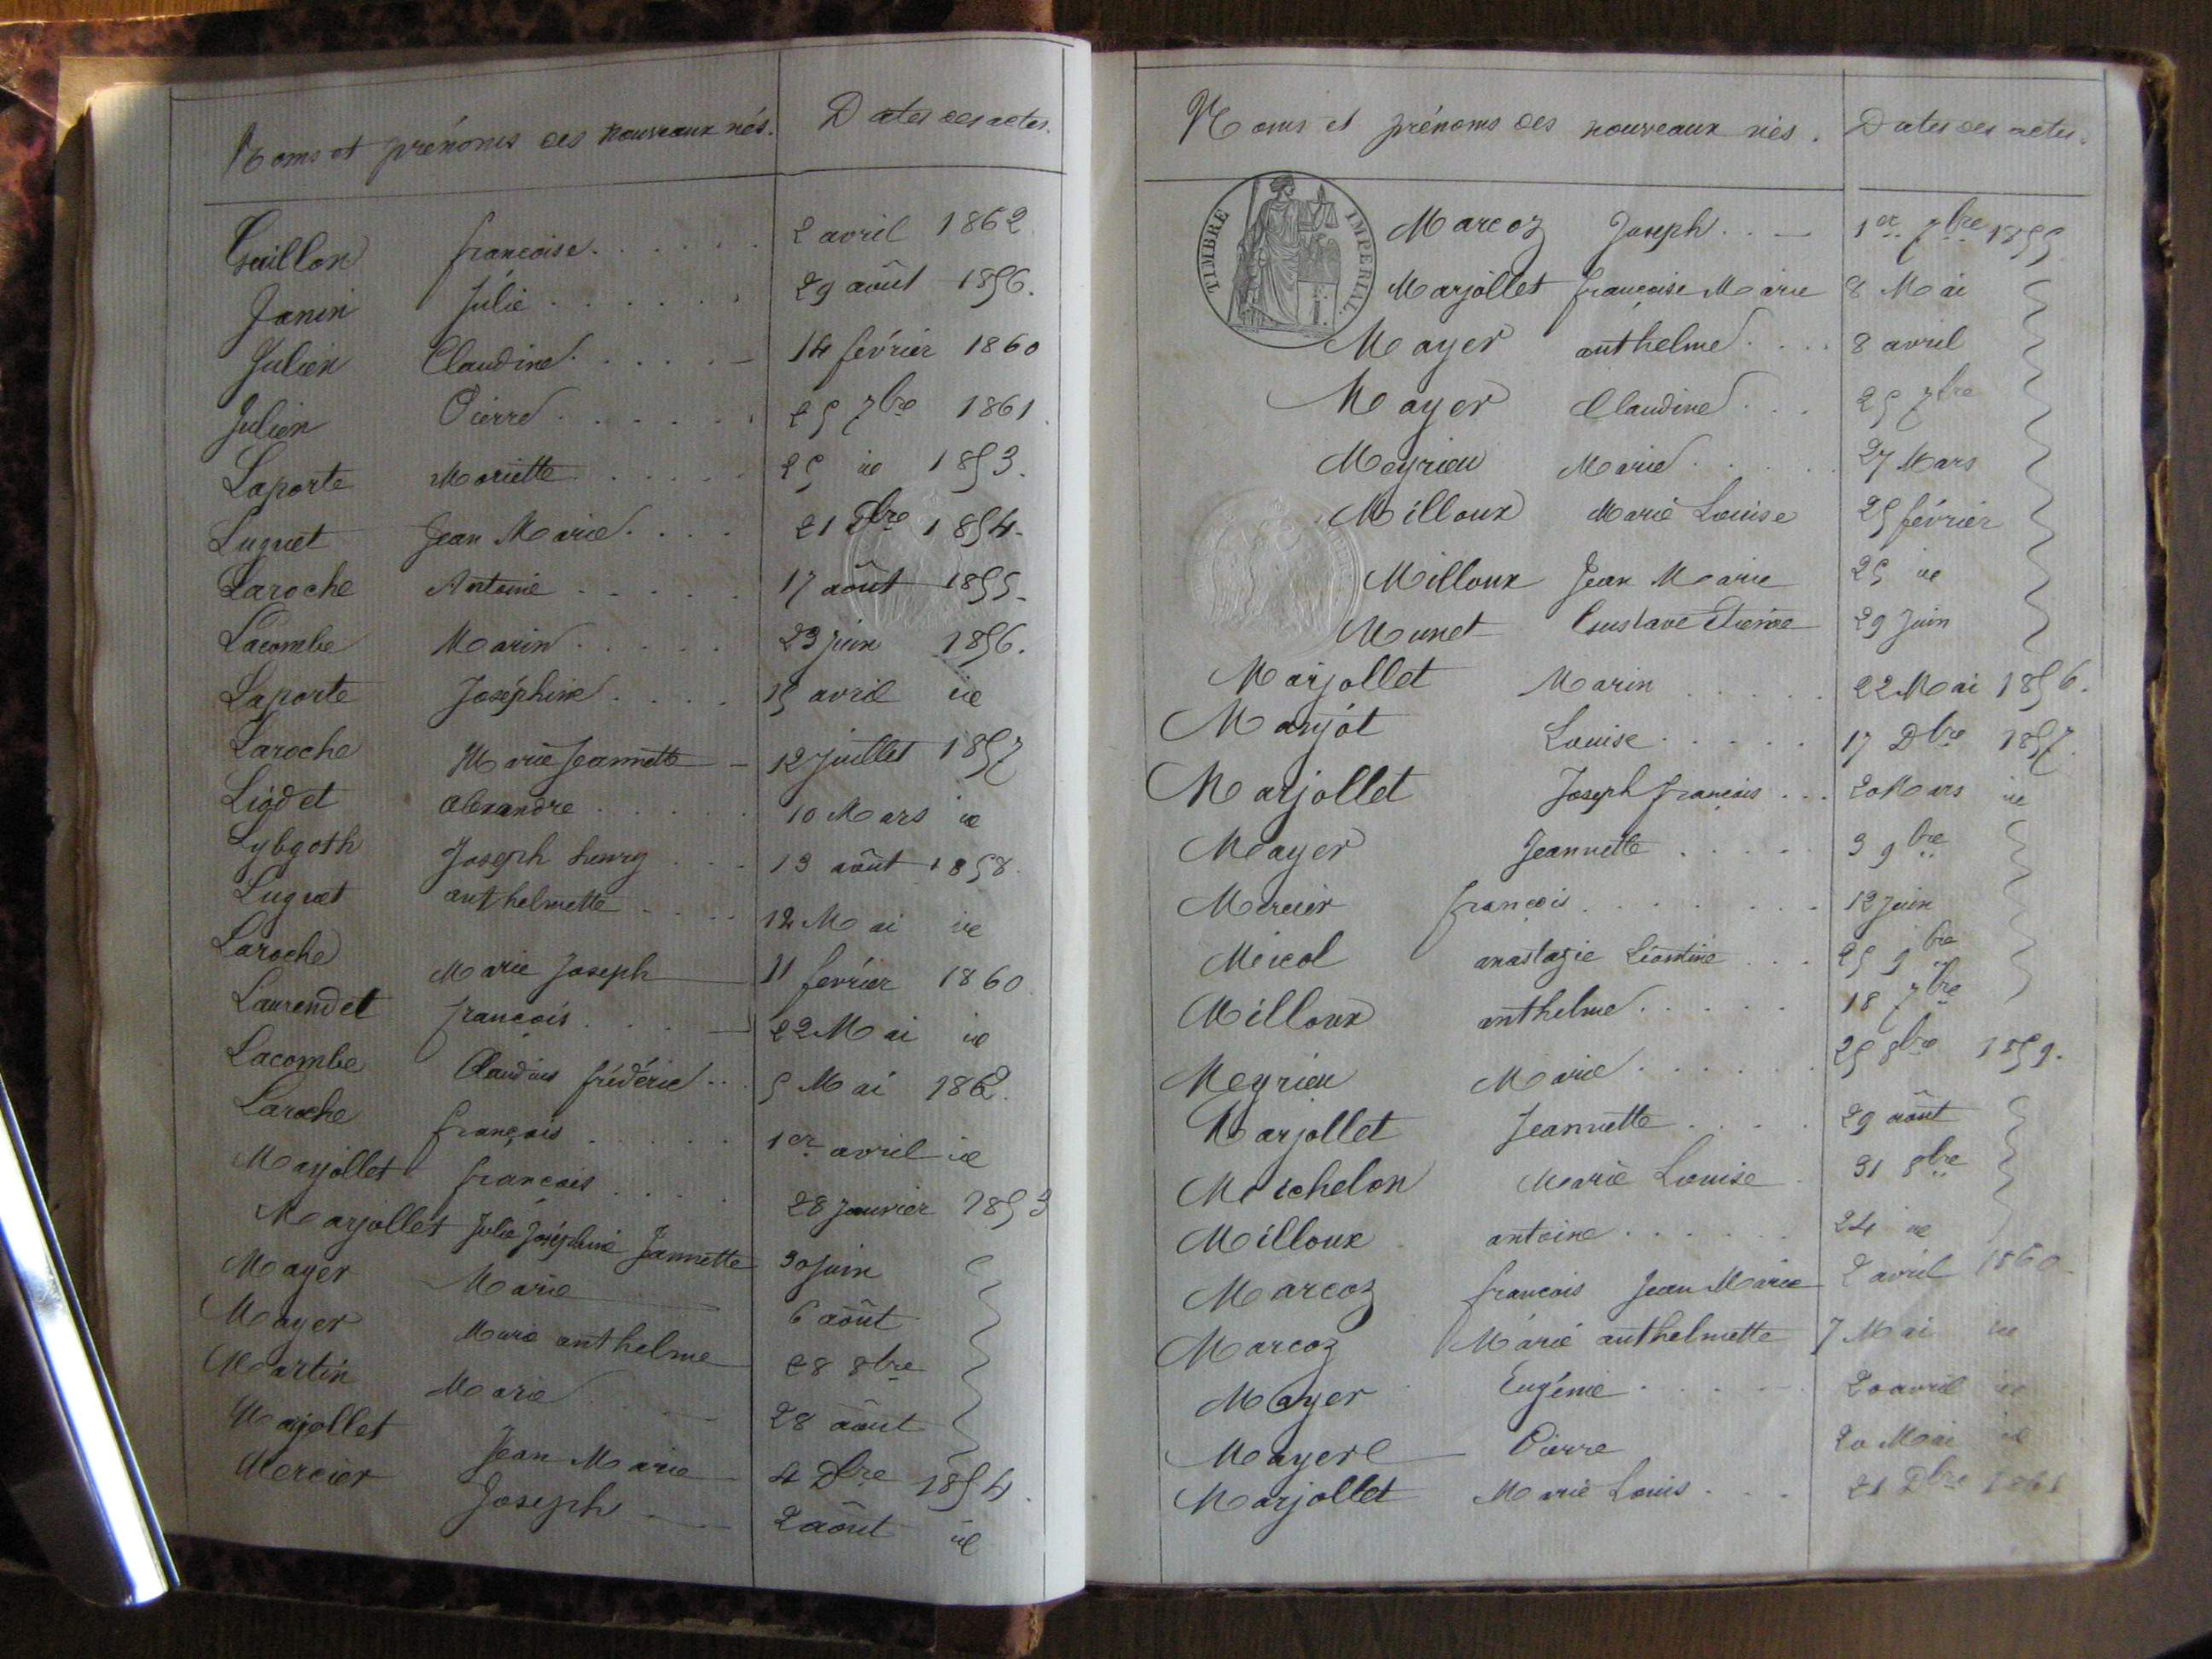 Noms et prénoms des nouveaux nés. Dates des actes.
Guillon françoise. 2 avril 1862
Janin Julie 29 août 1856.
Julien Claudine 14 février 1860
Julien Pierre 25 7bre 1861
Laporte Mariette 25 id 1853.
Luguet Jean Marie. 21 Dbre 1854.
Laroche Antoine 17 août 1855.
Lacombe Marin 23 juin 1856.
Laporte Joséphine 15 avril id
Laroche Marie Jeannette 12 juillet 1857
Liodet alexandre 10 Mars id
Lybgoth Joseph henry 13 août 1858.
Luguet anthelmette 12 Mai id
Laroche Marie Joseph 11 février 1860
Laurendet françois 22 Mai id
Lacombe Claudius frédéric 5 Mai 1862.
Laroche françois 1er avril id
Marjollet françois 28 janvier 1853
Marjollet Julie Joséphine Jeannette 30 juin
Mayer Marie 6 août
Mayer Marie anthelme 28 8bre
Martin Marie 28 août
Marjollet Jean Marie 4 Dbre 1854.
Mercier Joseph 2 août id
Noms et prénoms des nouveaux nés. Dates des actes.
TIMBRE IMPÉRIAL.
Marcoz Joseph 1er 7bre 1855
Marjollet françoise Marie 8 Mai
Mayer anthelme 8 avril
Mayer Claudine 25 7bre
Meyrieu Marie 27 Mars
Milloux Marie Louise 25 février
Milloux Jean Marie 25 id
Munet Gustave Etienne 29 juin
Marjollet Marin 22 Mai 1856.
Marjot Louise 17 Dbre 1857.
Marjollet Joseph françois 20 Mars id
Mayer Jeannette 3 9bre
Mercier françois 12 juin
Micol anastazie Léontine 25 9bre
Milloux anthelme 18 7bre
Meyrieu Marie 25 8bre 1859.
Marjollet Jeannette 29 août
Michelon Marie Louise 31 8bre
Milloux antoine 24 id
Marcoz françois Jean Marie 2 avril 1860
Marcoz Marie anthelmette 7 Mai id
Mayer Eugénie 20 avril id
Mayere Pierre 20 Mai id
Marjollet Marie Louis 21 Dbre 1861